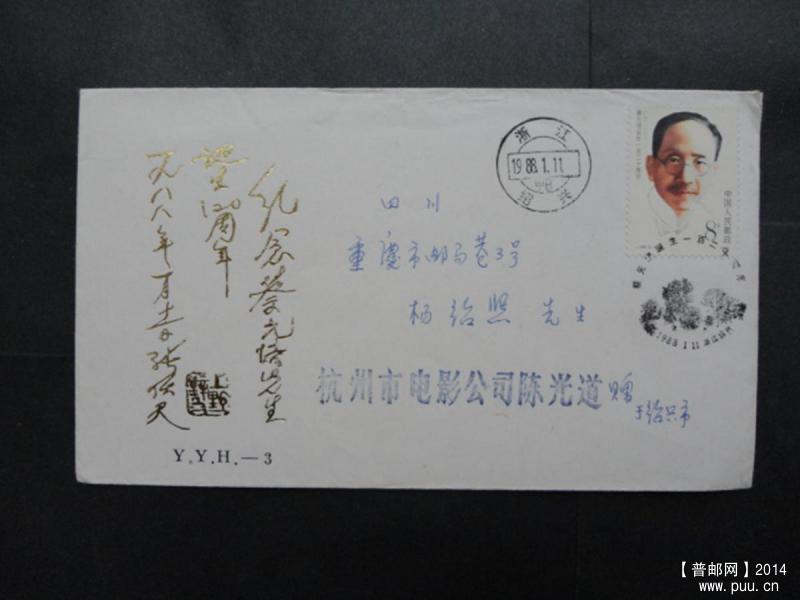 纪念蔡元培先生
诞生120周年
一九八八年一月十一日张伏天
Y.Y.H.—3
浙江
1988.1.11.
绍兴
中国人民邮政
8分
1988.1.11
四川
重庆市邮局巷3号
杨绍照 先生
杭州市电影公司陈光道 赠
于绍兴市
【普邮网】2014
www.puu.cn